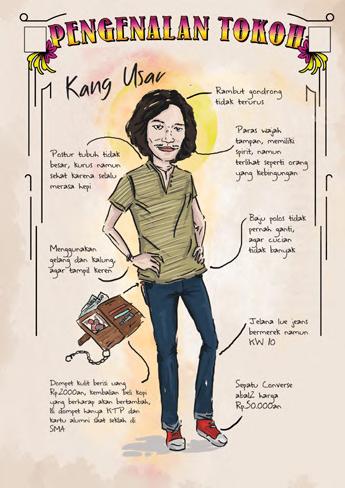 PENGENALAN TOKOH
Kang Usar
Rambut gondrong
tidak terurus
Postur tubuh tidak
besar, kurus namun
sehat karena selalu
merasa hepi
Paras wajah
tampan, memiliki
spirit, namun
terlihat seperti orang
yang kebingungan
Menggunakan
gelang dan kalung,
agar tampil keren
Baju polos tidak
pernah ganti,
agar cucian
tidak banyak
Jelana lue jeans
bermerek namun
KW 10
Dompet kulit berisi uang
Rp.2000an, kembalian beli kopi
yang berharap akan bertambah,
Isi dompet hanya KTP dan
kartu alumni saat seklah di
SMA
Sepatu Converse
abal2 harga
Rp.50.000an